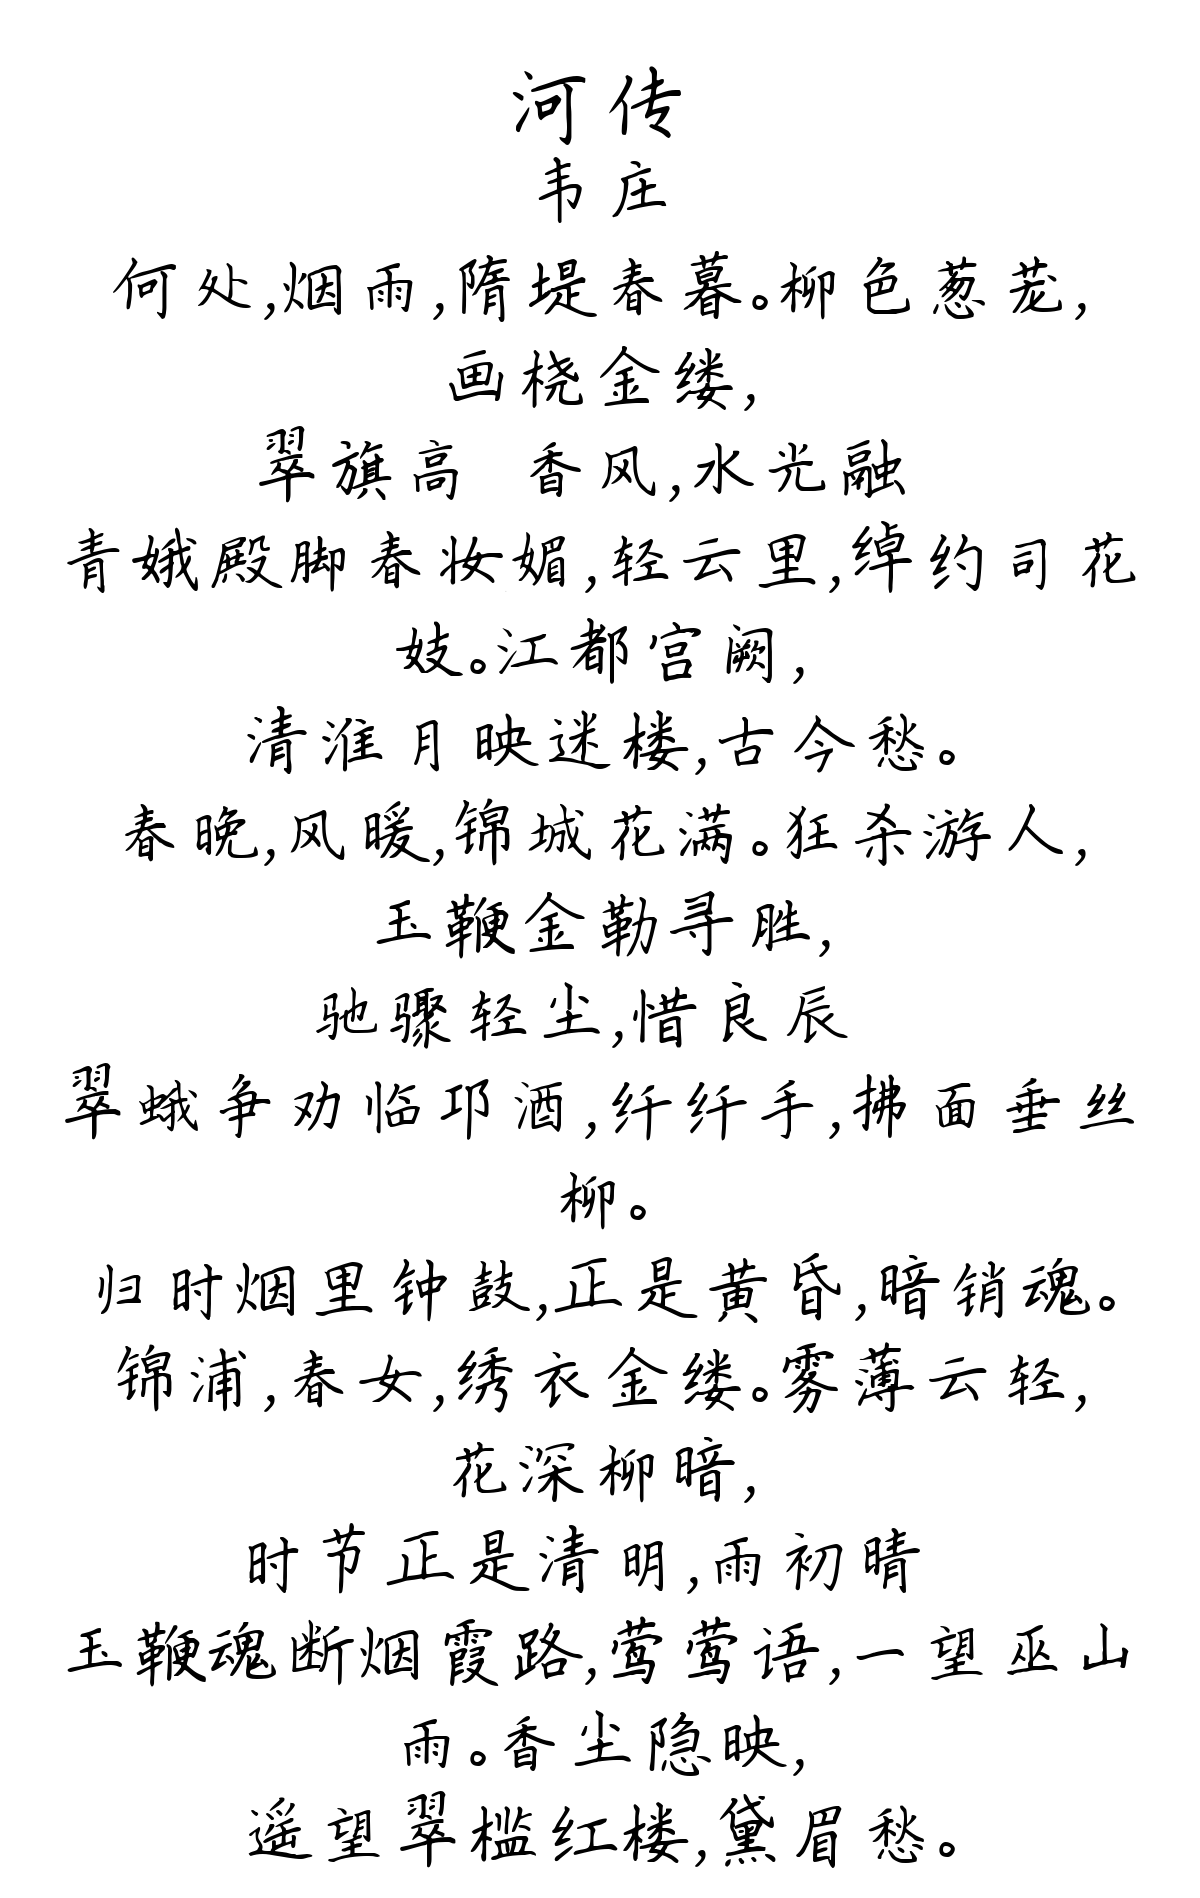 河传
韦庄
何处,烟雨,隋堤春暮。柳色葱茏,
画桡金缕,
翠旗高 香风,水光融
青娥殿脚春妆媚,轻云里,绰约司花
妓。江都宫阙,
清淮月映迷楼,古今愁。
春晚,风暖,锦城花满。狂杀游人,
玉鞭金勒寻胜,
驰骤轻尘,惜良辰
翠蛾争劝临邛酒,纤纤手,拂面垂丝
柳。
归时烟里钟鼓,正是黄昏,暗销魂。
锦浦,春女,绣衣金缕。雾薄云轻,
花深柳暗,
时节正是清明,雨初晴
玉鞭魂断烟霞路,莺莺语,一望巫山
雨。香尘隐映,
遥望翠槛红楼,黛眉愁。